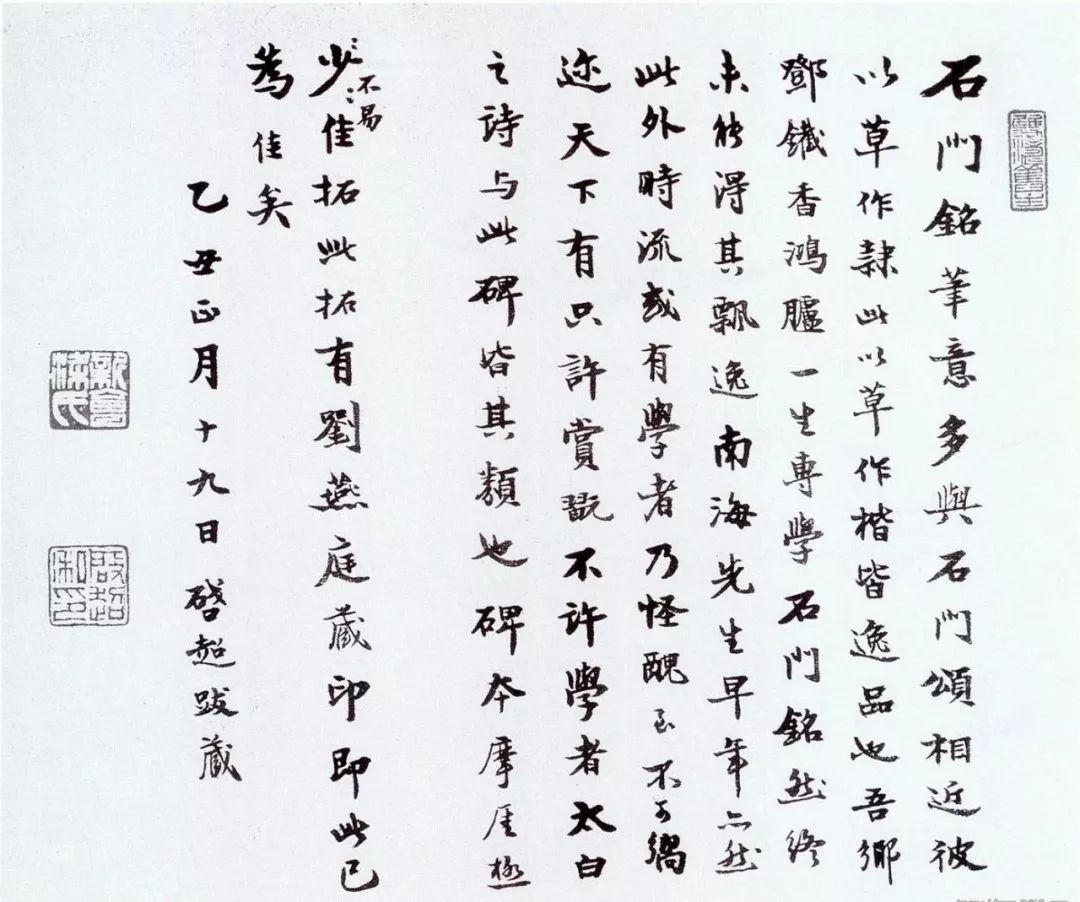 石門銘筆意多與石門頌相近彼
以草作隸此以草作楷皆逸品也吾鄉
鄧鐵香鴻臚一生專學石門銘然終
未能得其飄逸南海先生早年亦然
此外時流或有學者乃怪醜至不可嚮
迩天下有只許賞翫不許學者太白
之詩与此碑皆其類也碑本摩厓極
少佳拓此拓有劉燕庭藏印即此已
不易
為佳矣
乙丑正月十九日啓超跋藏
新會
梁氏
啟超
私印